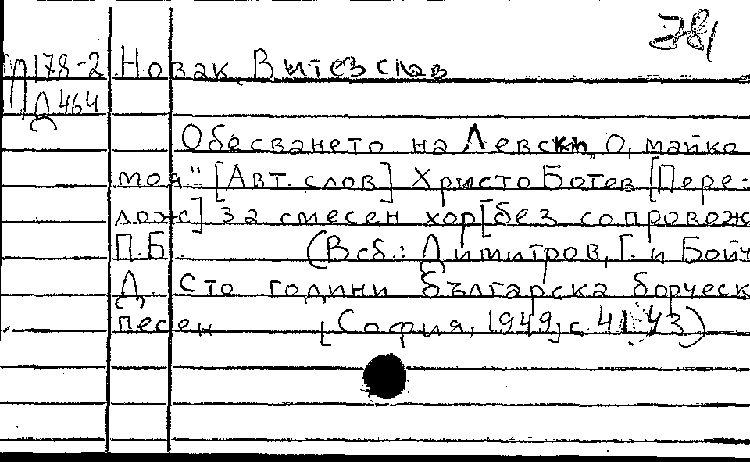 781
П178-2 Новак, Витезслав
Д464
Обесването на Левски „О, майко
моя" [Авт. слов] Христо Ботев [Пере-
лож] За смесен хор [без сопровож
П.Б. (В сб.: Димитров, Г. и Бойч
Д. Сто години българска борческ
песен [София, 1949] с. 41-43)